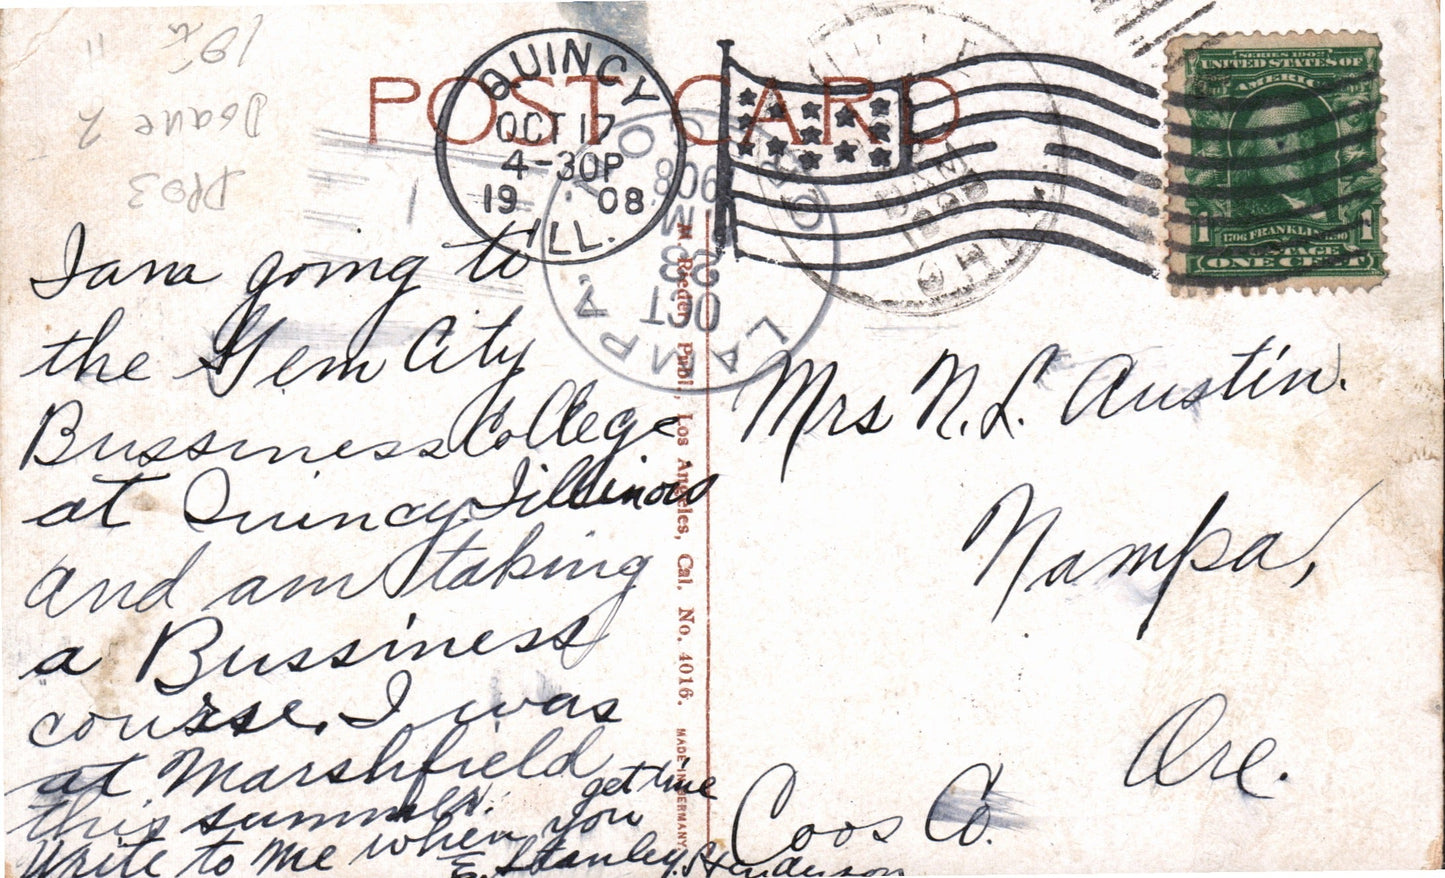 POST CARD
QUINCY
OCT 17
4-30P
19 08
ILL.
LAMPA
OCT
23
M
1908
ORE
SERIES 1902
UNITED STATES OF
AMERICA
1 1
1706 FRANKLIN 1790
POSTAGE
ONE CENT
I am going to
the Gem City
Bussiness College
at Quincy, Illinois
and am taking
a Bussiness
course. I was
at Marshfield
this summer.
Write to me when you get time
E. Stanley Henderson
Mrs N. L. Austin.
Nampa,
Ore.
Coos Co.
M. Rieder, Publ., Los Angeles, Cal. No. 4016. MADE IN GERMANY.